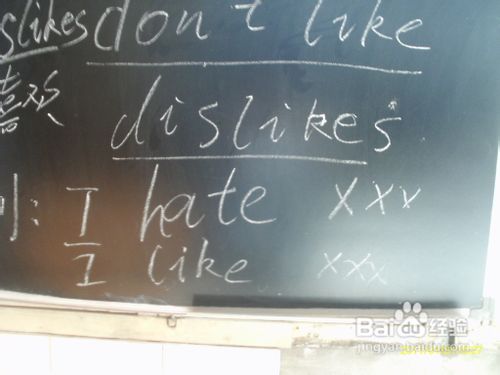 slikes don't like
喜欢 dislikes
: I hate xxx
I like xxx
Baidu经验
jingyan.baidu.com